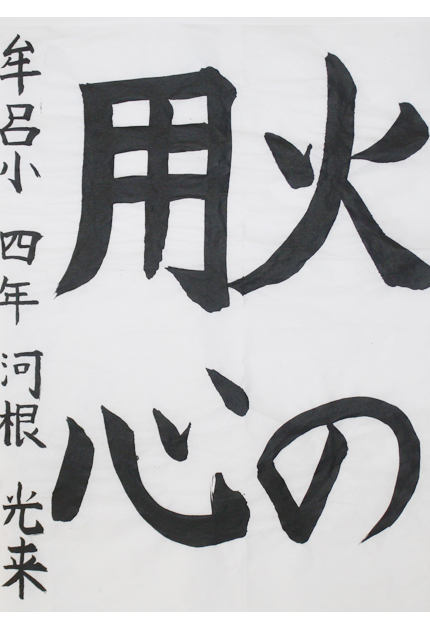 火の
用心
牟呂小 四年 河根 光来